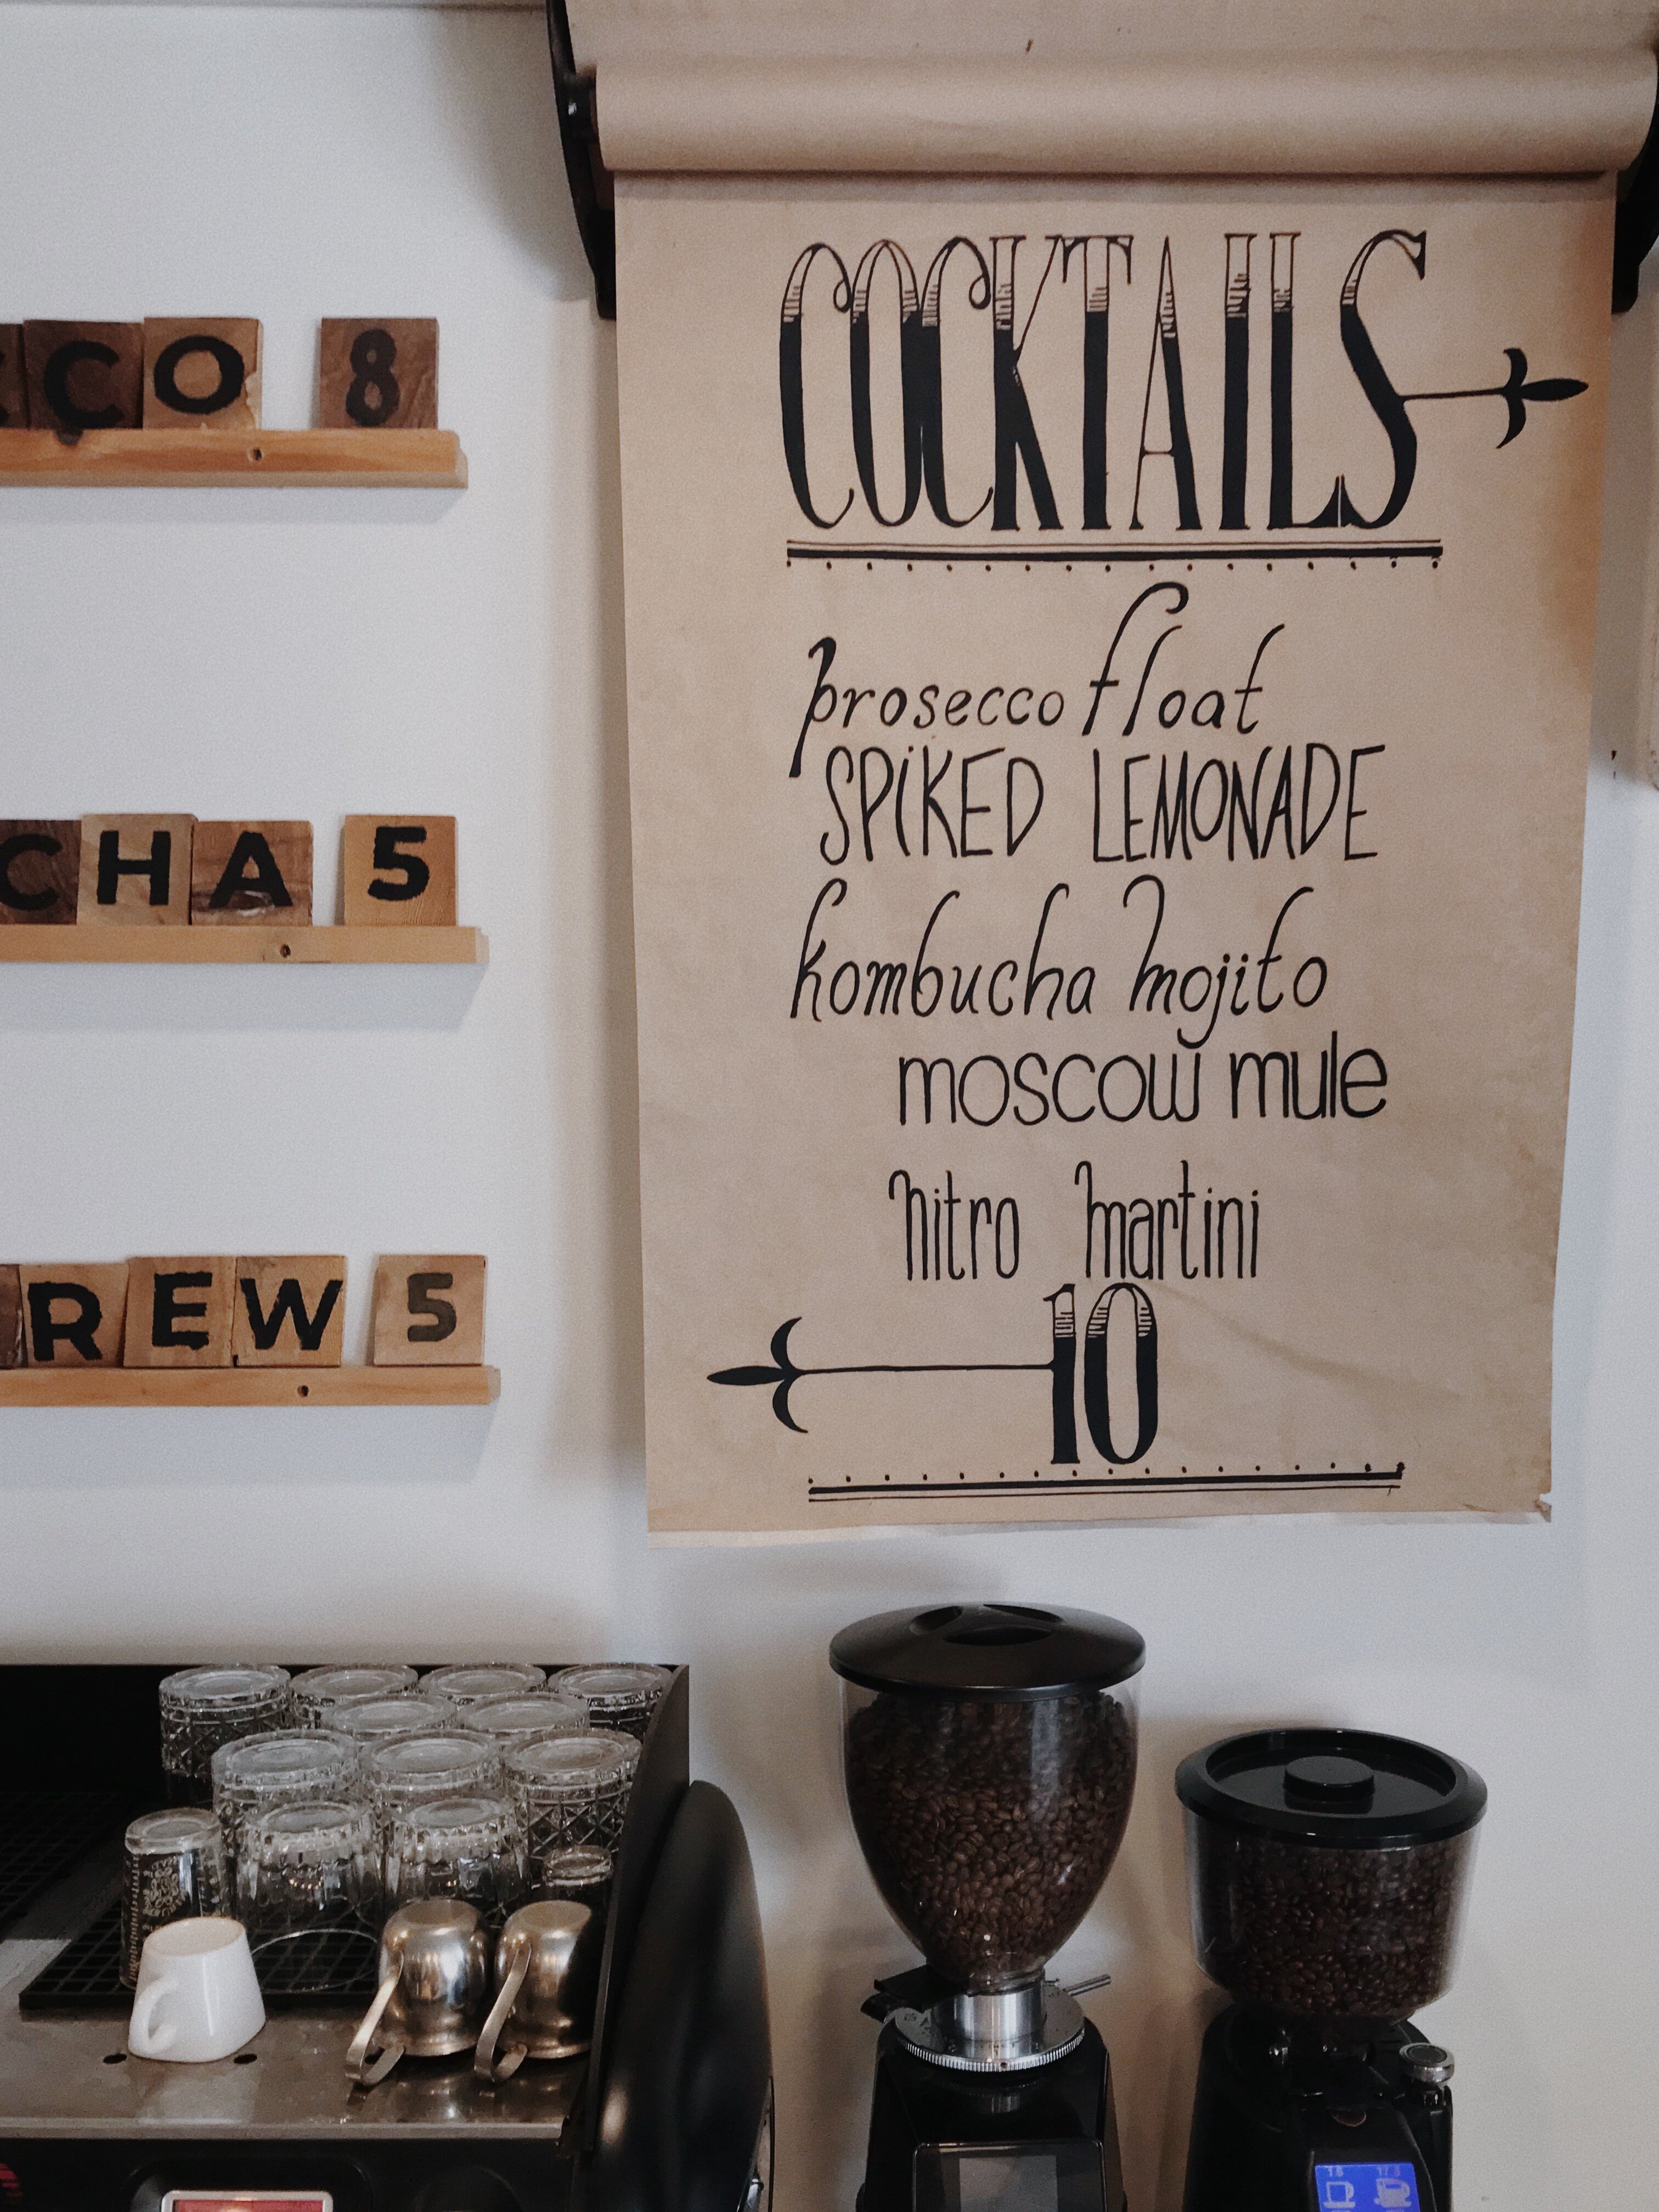 CCO 8
CHA 5
REW 5
COCKTAILS
prosecco float
SPiKED LEMONADE
kombucha mojito
moscow mule
nitro martini
10